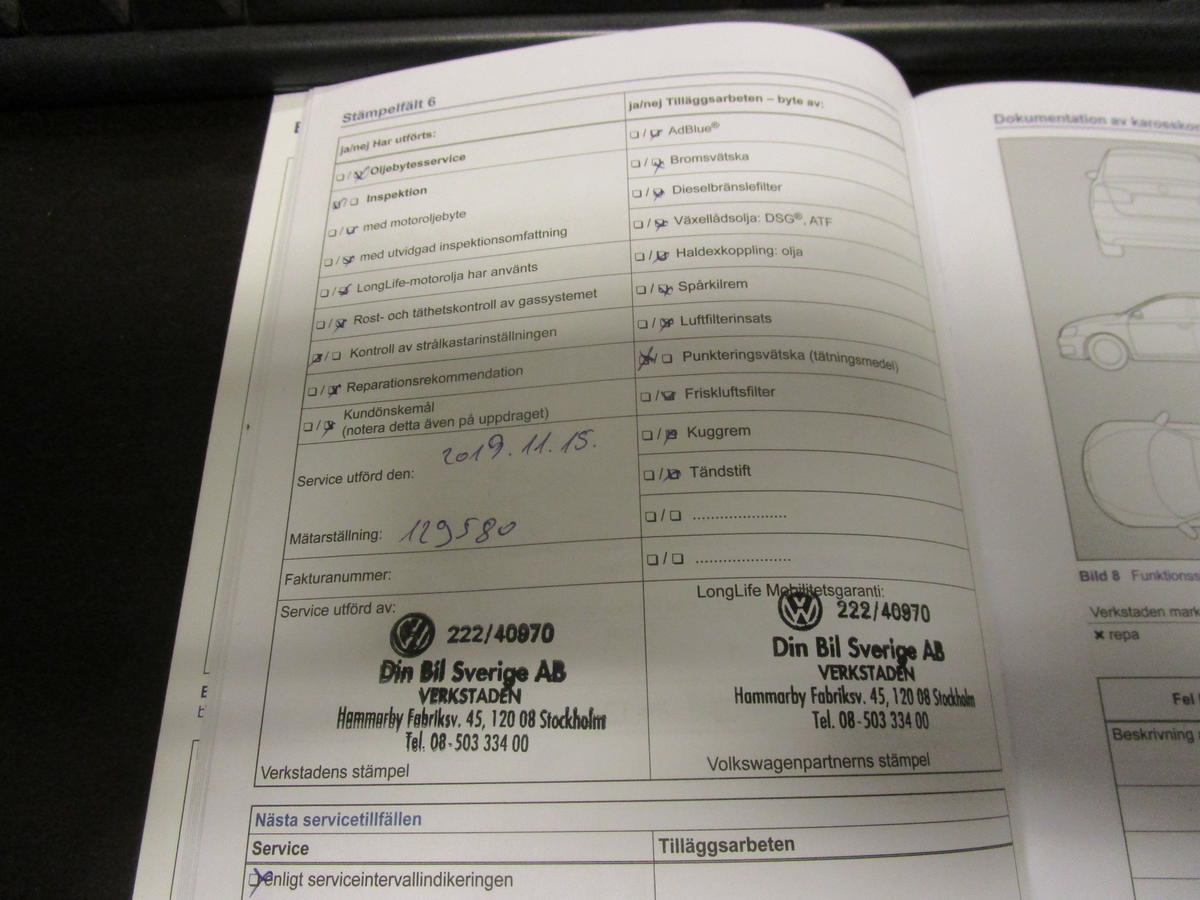 Stämpelfält 6
ja/nej Har utförts:
Oljebytesservice
Inspektion
med motoroljebyte
med utvidgad inspektionsomfattning
LongLife-motorolja har använts
Rost- och täthetskontroll av gassystemet
Kontroll av strålkastarinställningen
Reparationsrekommendation
Kundönskemål
(notera detta även på uppdraget)
Service utförd den: 2019.11.15.
Mätarställning: 129580
Fakturanummer:
Service utförd av:
222/40970
Din Bil Sverige AB
VERKSTADEN
Hammarby Fabriksv. 45, 120 08 Stockholm
Tel. 08-503 334 00
Verkstadens stämpel
ja/nej Tilläggsarbeten – byte av:
AdBlue®
Bromsvätska
Dieselbränslefilter
Växellådsolja: DSG®, ATF
Haldexkoppling: olja
Spårkilrem
Luftfilterinsats
Punkteringsvätska (tätningsmedel)
Friskluftsfilter
Kuggrem
Tändstift
LongLife Mobilitetsgaranti:
222/40970
Din Bil Sverige AB
VERKSTADEN
Hammarby Fabriksv. 45, 120 08 Stockholm
Tel. 08-503 334 00
Volkswagenpartnerns stämpel
Nästa servicetillfällen
Service
Tilläggsarbeten
enligt serviceintervallindikeringen
Dokumentation av
Bild 8 Funktionss
Verkstaden mark
× repa
Fel
Beskrivning